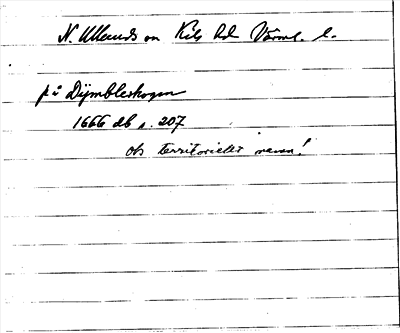 N. Ullerud sn Kils hd Värml. l.
på Dijmbleskogen
1666 db s. 207
obs territoriellt namn!